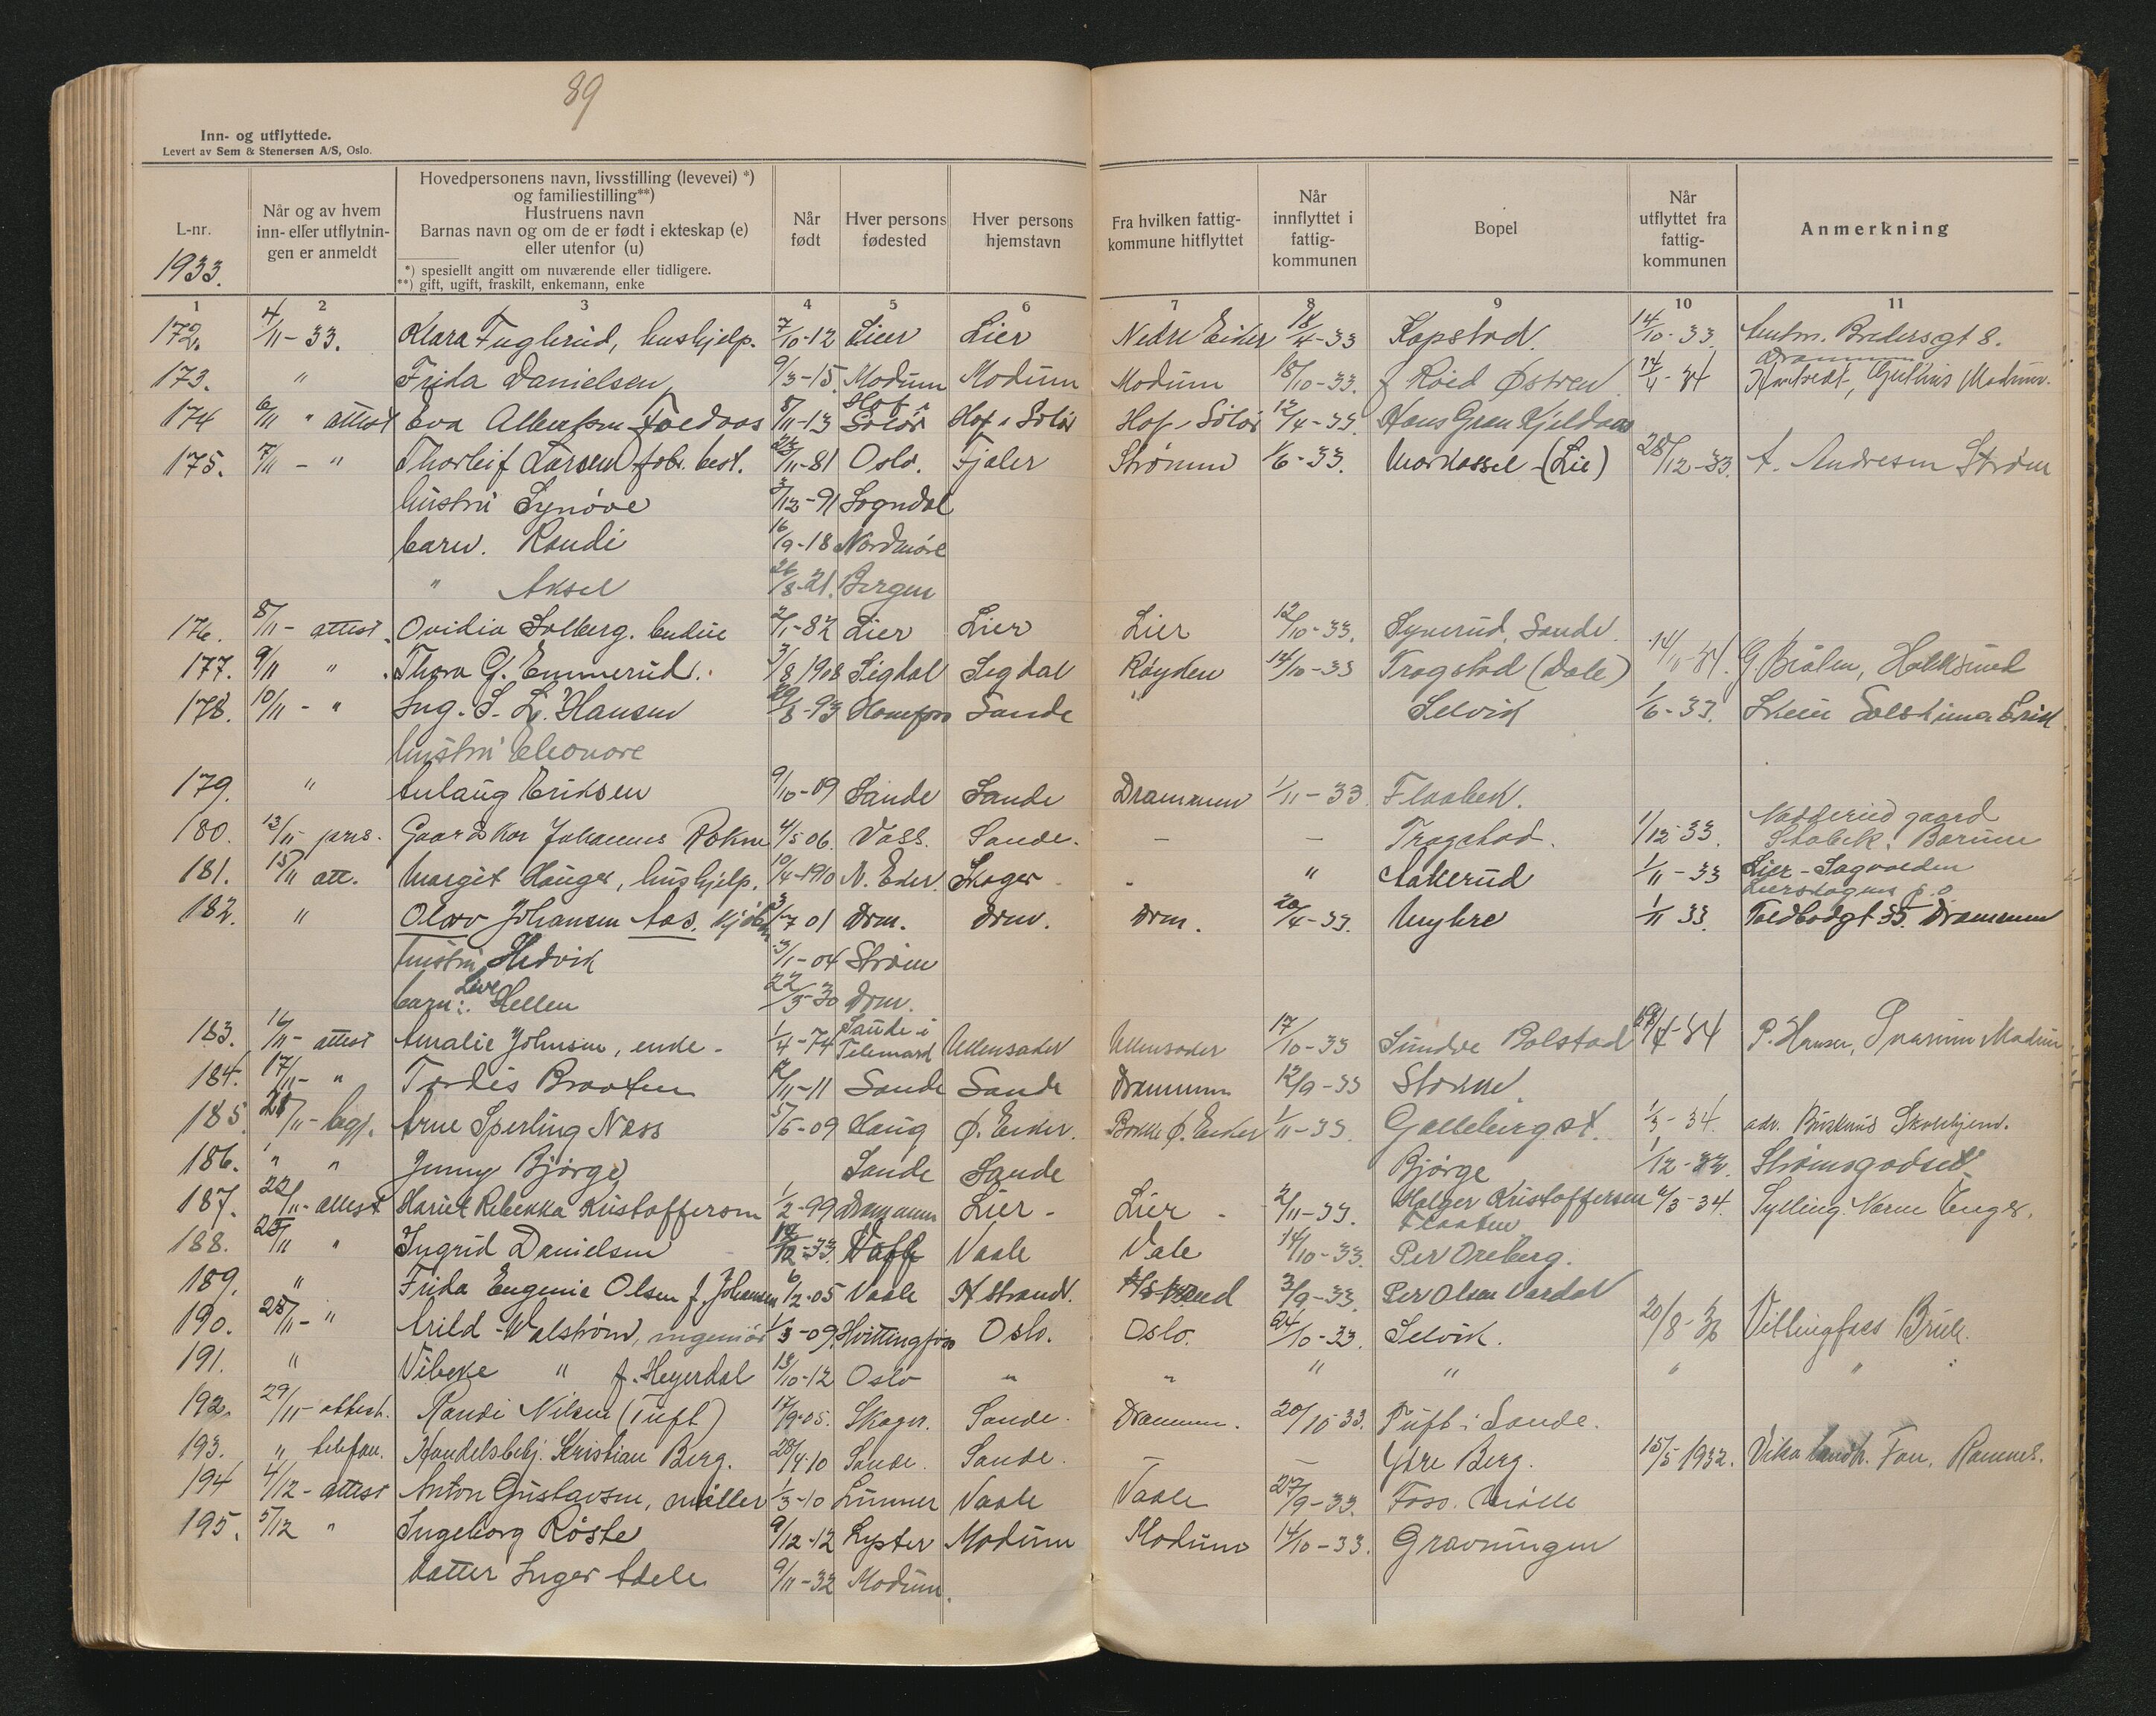 89
Inn- og utflyttede.
Levert av Sem & Stenersen A/S, Oslo.
L-nr. 1933.
Når og av hvem inn- eller utflytnin- gen er anmeldt
Hovedpersonens navn, livsstilling (levevei) *)
og familiestilling**)
Hustruens navn
Barnas navn og om de er født i ekteskap (e)
eller utenfor (u)
*) spesiellt angitt om nuværende eller tidligere.
**) gift, ugift, fraskilt, enkemann, enke
Når født
Hver persons fødested
Hver persons hjemstavn
Fra hvilken fattig- kommune hitflyttet
Når innflyttet i fattig- kommunen
Bopel
Når utflyttet fra fattig- kommunen
Anmerkning
1 2 3 4 5 6 7 8 9 10 11
172. 4/11-33. Klara Fuglerud, hushjelp. 7/10-12 Lier Lier Nedre Eiker 18/4-33 Kopstad. 14/10-33. Bredersgt 8. Drammen
173. " Frida Danielsen 9/3-15. Modum Modum Modum 18/10-33. Røed Østren 12/4-34 Modum.
174 6/11 " attest Eva 8/11-13 Hof i Solør Hof i Solør Hof i Solør 12/4-33. Hans Gran Kjeldaas
175. 7/11 - " Thorleif Larsen fabr. best. 22/11-81 Oslo. Fjaler Strømm 1/6-33. (Lie) 28/12-33. A. Andresen Strøm
hustru Synøve 3/12-91 Sogndal
barn. Randi 16/9-18 Nordmøre
" Aksel 26/8-21. Bergen
176. 8/11- attest. Ovidia Solberg. budeie 2/1-82 Lier Lier Lier 12/10-33. Synerud, Sande.
177. 9/11 " Thora G. Emmerud. 3/8 1908 Sigdal Sigdal Røyken 14/10-33 Tragstad (Dale) 14/11-34. G. Braaten, Hokksund
178. 10/11 - " Ing. S. L. Hansen 29/8-93 Sande " Selvik 1/6-33. Skien
hustru Eleonore
179. " Aulaug Eriksen 9/10-09 Sande Sande Drammen 1/11-33 Flaabek.
180. 13/11 pers. Gaardskar Johannes 4/5 06. Voss. Sande. - - Tragstad. 1/12-33. Nadderud gaard Stabek. Bærum
181. 15/11 att. Margit Hauger, hushjelp. 10/4-1910 N. Eker. Skoger - " Aakerud 1/11-33 Lier - Sagvolden Lierskogens p.o
182. " Olav Johansen Aas. 3/7 01 Drm. Drm. Drm. 20/4-33. Myhre 1/11 33. Toldbodgt 55. Drammen
hustru Hedvik 3/1-04 Strøm
barn: Live Hellen 22/3-30 Drm.
183. 16/11- attest Amalie Johnsen, enke - 1/4-74 Sande i Telemark Ullensaker Ullensaker 17/10-33 Sundre Bolstad 4-34 P. Hansen, Snarum Modum
184. 17/11- " Tordis Braaten 2/11-11 Sande Sande Drammen 12/9-33 Stokke.
185. 21/11- begj. Arne Sperling Næss 5/5-09 Haug Ø. Eiker. Ø. Eiker 1/11-33. Gallebergst. 1/3-34. adr. Buskerud Skolehjem.
186. " " Jenny Bjørge Sande Sande Bjørge 1/12-32. Strømsgodset
187. 22/11- attest Hariet Rebekka Kristofferson 1/2-99 Drammen Lier - Lier - 2/11-33. Holger Kristoffersen Flaaten 6/3-34. Sylling. Enger.
188. 25/11 " Ingrid Danielsen 33. Vaale Vale 14/10-33. Per Oreberg.
189. " Frida Eugenie Olsen f. Johansen 6/2-05 Vaale H strand. 3/9-33. Per Olsen Vardal
190. 28/11- " Arild Walstrøm, ingeniør 1/3-09. Hvittingfoss Oslo. Oslo. 24/10-33. Selvik. 20/8-36 Vittingfoss Bruk.
191. " Vibeke " f. Heyerdal 13/10-12 Oslo " " " " " " "
192. 29/11- attest. Randi Nilsen (Tuft) 17/9-05. Skoger. Sande. Drammen. 20/10 33. Tuft i Sande.
193. " telefon. Handelsbetj. Kristian Berg. 28/4-10 Sande. Sande. - - Ytre Berg. 15/5 1932. Vika landh. Fon, Ramnes.
194 4/12- attest Anton Gustavsen, møller 1/3-10 Lunner Vaale Vaale 27/9-33. Foss. Mølle
195. 5/12 " Ingeborg Røste 9/12-12 Lyster Modum Modum 14/10-33. Gravningen
datter Inger Adele 9/11-32 Modum.